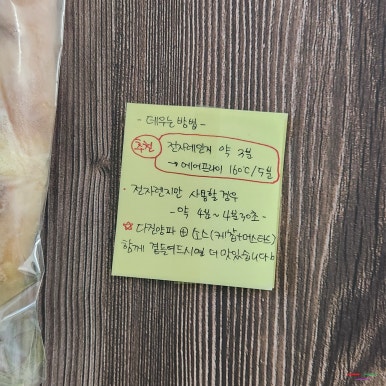 - 데우는 방법 -
추천
전자레인지 약 3분
→ 에어프라이 160°C/5분
· 전자렌지만 사용할 경우
- 약 4분~4분30초 -
☆ 다진양파 ⊕ 소스(케찹+머스타드)
함께 곁들여드시면 더 맛있습니다b